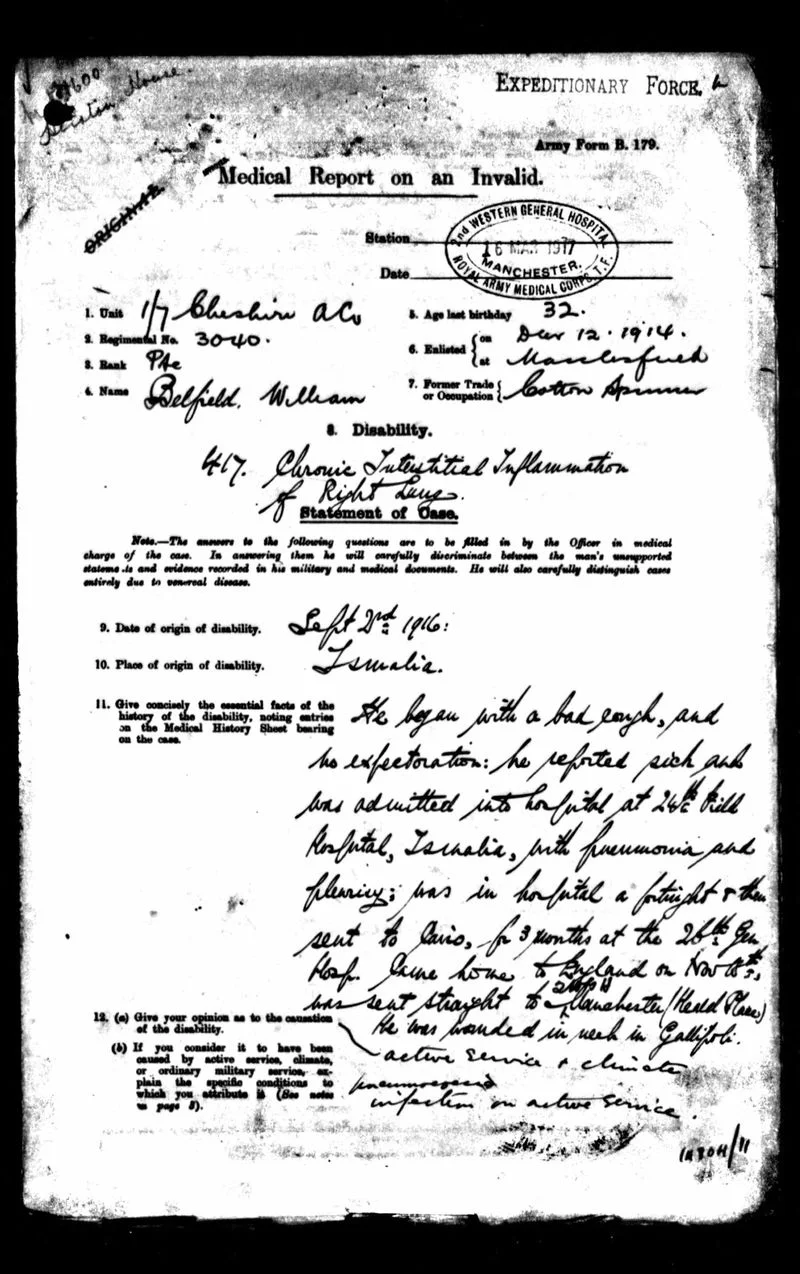 EXPEDITIONARY FORCE.
Army Form B. 179.
ORIGINAL
Medical Report on an Invalid.
Station
2nd WESTERN GENERAL HOSPITAL
16 MAR 1917
MANCHESTER.
ROYAL ARMY MEDICAL CORPS. T.F.
Date
1. Unit 1/7 Cheshire A Co
5. Age last birthday 32.
2. Regimental No. 3040.
6. Enlisted { on Decr 12. 1914.
at Macclesfield
3. Rank Pte
4. Name Belfield. William
7. Former Trade or Occupation { Cotton Spinner
8. Disability.
417. Chronic Interstitial Inflammation
of Right Lung.
Statement of Case.
Note.—The answers to the following questions are to be filled in by the Officer in medical
charge of the case. In answering them he will carefully discriminate between the man's unsupported
statements and evidence recorded in his military and medical documents. He will also carefully distinguish cases
entirely due to venereal disease.
9. Date of origin of disability. Sept 2nd 1916:
10. Place of origin of disability. Ismalia.
11. Give concisely the essential facts of the
history of the disability, noting entries
on the Medical History Sheet bearing
on the case.
He began with a bad cough, and
no expectoration: he reported sick and
was admitted into hospital at 24th Field
Hospital, Ismalia, with pneumonia and
pleurisy; was in hospital a fortnight & then
sent to Cairo, for 3 months at the 26th Gen
Hosp. Came home to England on Nov
was sent straight to Manchester
He was wounded in neck in Gallipoli.
12. (a) Give your opinion as to the causation
of the disability.
active service & climate
(b) If you consider it to have been
caused by active service, climate,
or ordinary military service, ex-
plain the specific conditions to
which you attribute it (See notes
on page 3).
pneumococcic
infection on active service.